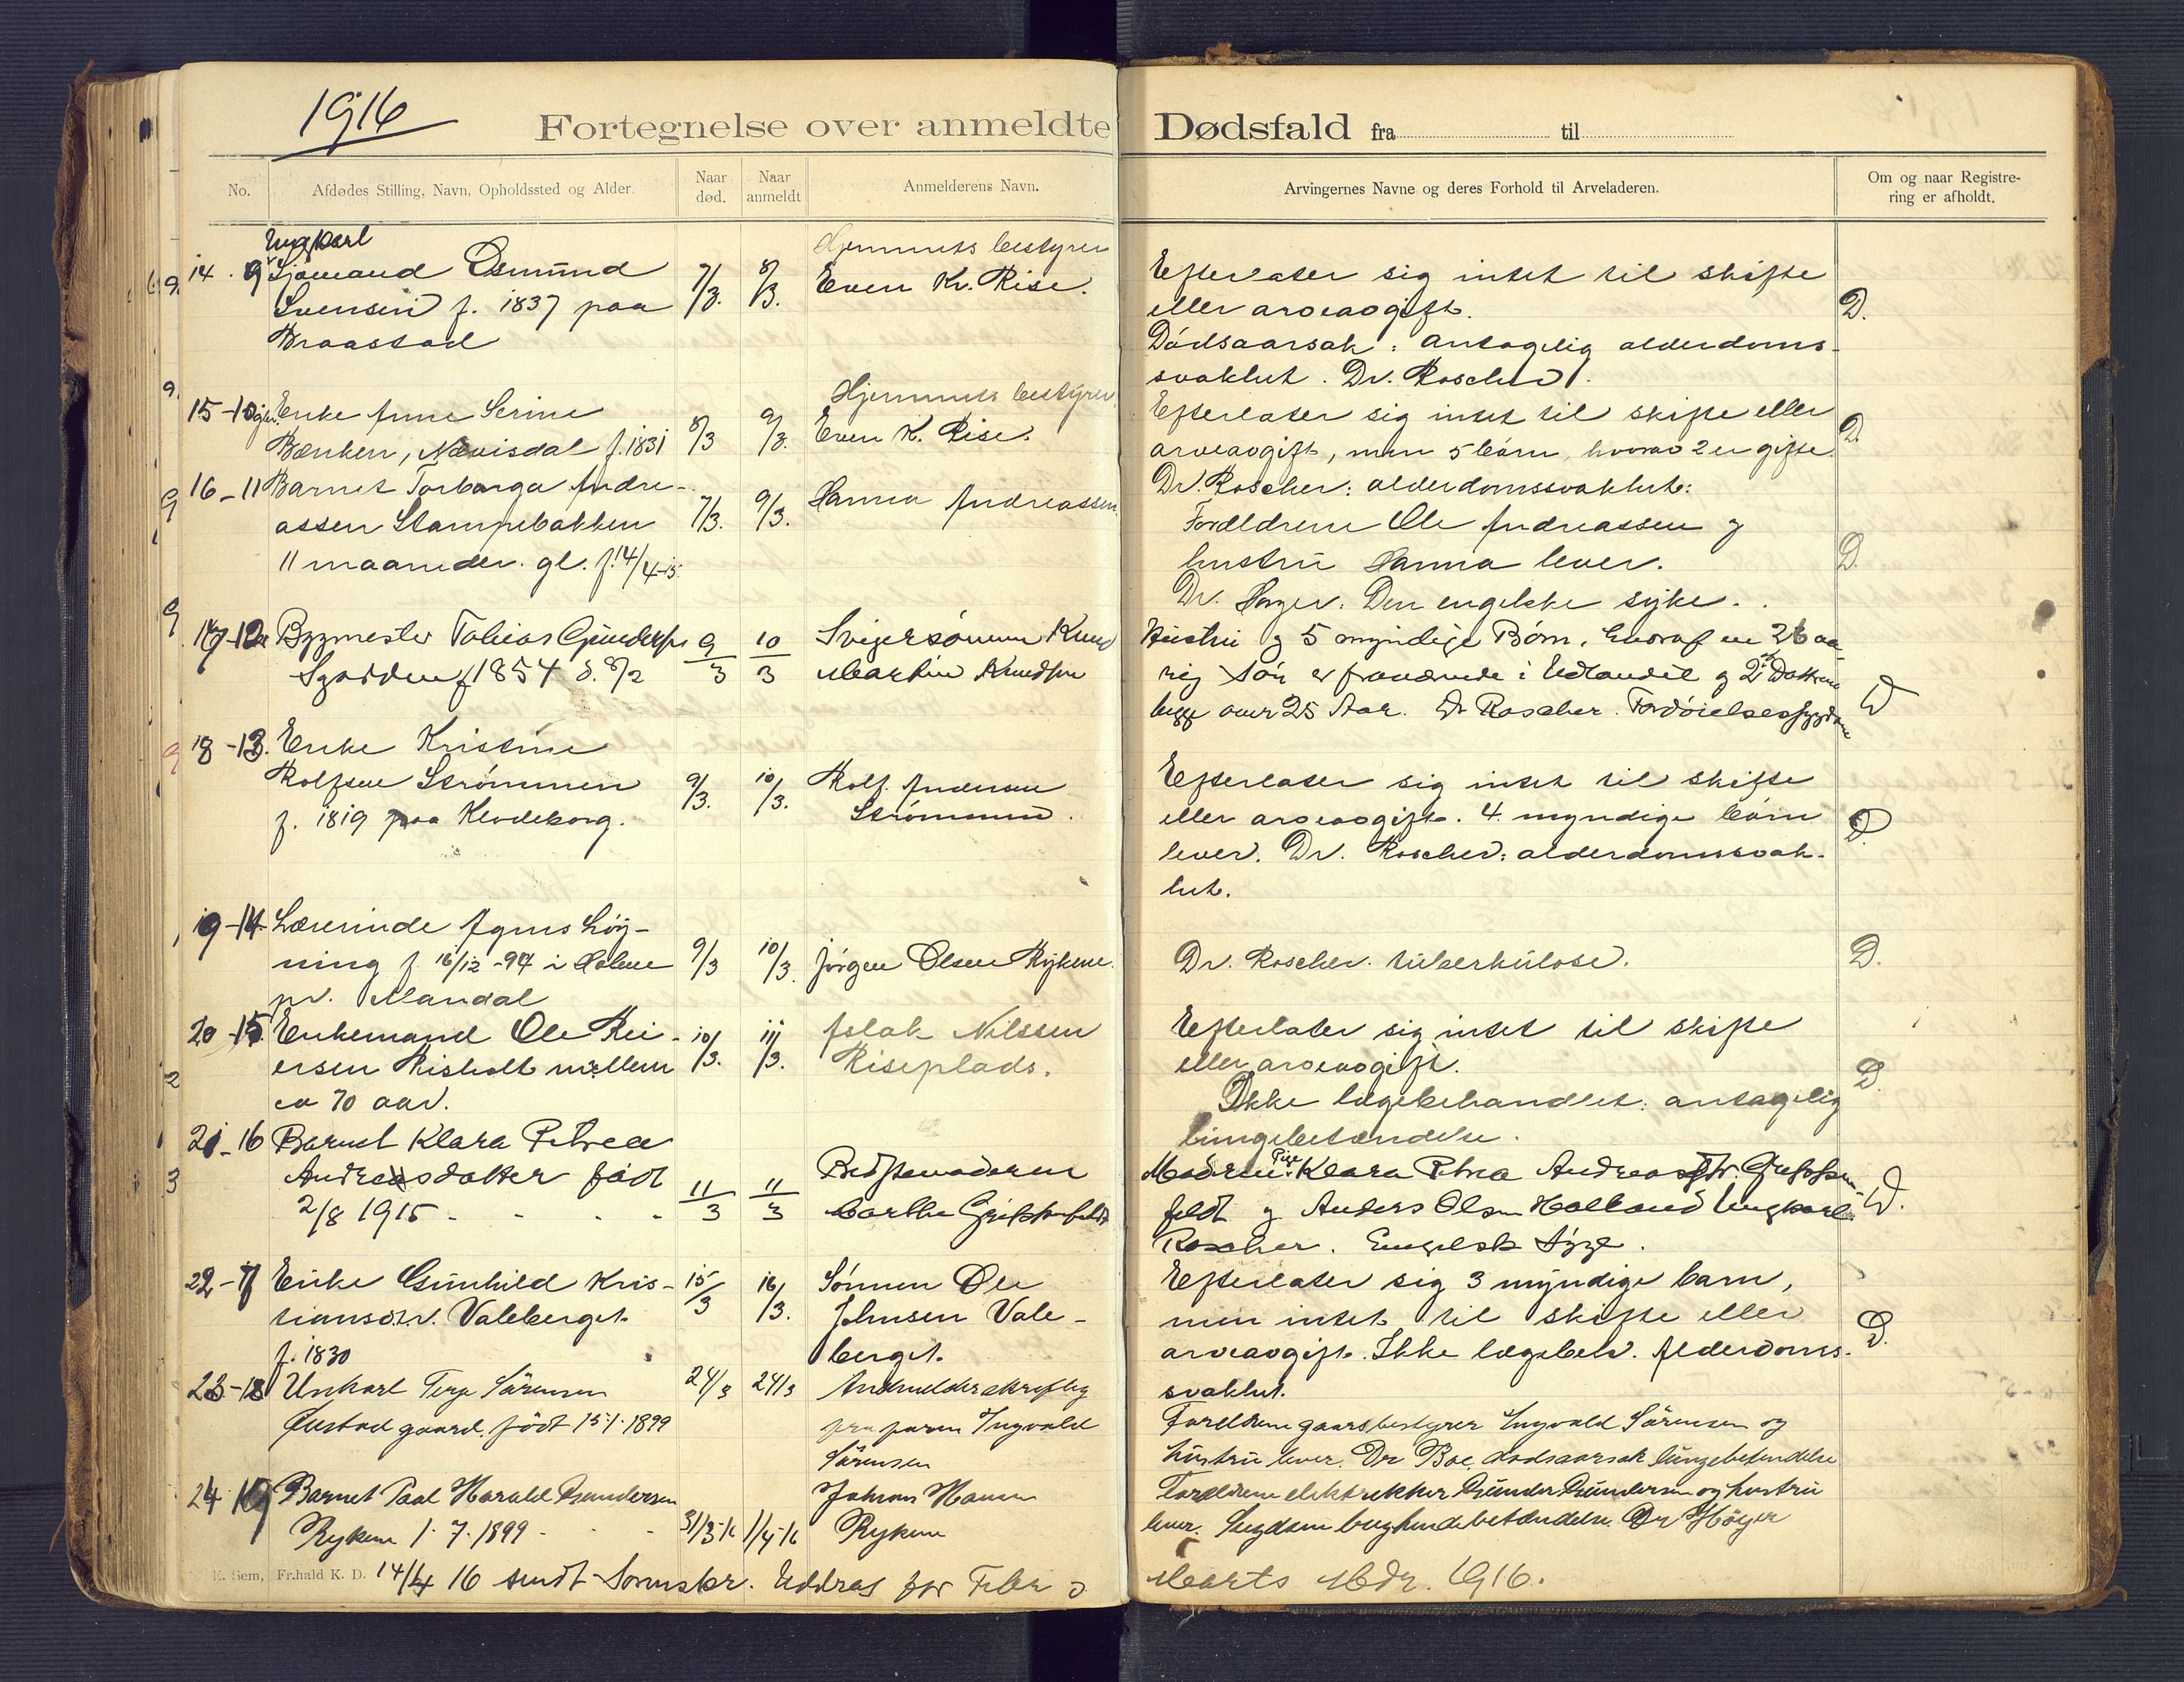 1916
Fortegnelse over anmeldte Dødsfald fra til
No.
Afdødes Stilling, Navn, Opholdssted og Alder.
Naar død.
Naar anmeldt
Anmelderens Navn.
Arvingernes Navne og deres Forhold til Arveladeren.
Om og naar Registrering er afholdt.
Ungkarl
14. 9 Sjømand Osmund
Svensen f. 1837 paa
Braastad
7/3. 8/3.
Hjemmets bestyrer
Even Kr. Rise.
Efterlater sig intet til skifte
eller arveavgift.
Dødsaarsak: antagelig alderdoms-
svakhet. Dr. Roscher.
D.
15-10 Enke Anne Serine
Bænken, Nævisdal f. 1831
8/3 9/3.
Hjemmets bestyrer
Even K. Rise.
Efterlater sig intet til skifte eller
arveavgift, men 5 børn, hvorav 2 er gifte.
Dr. Roscher: alderdomssvakhet:
D.
16-11 Barnet Torborga Andre-
assen Stampebakken
11 maaneder. gl. f. 14/4-15.
7/3. 9/3.
Hanna Andreassen.
Forældrene Ole Andreassen og
hustru Hanna lever.
Dr. Høyer. Den engelske syke.
D.
17-12 Bygmester Tobias Gundersen
f 1854 d. 8/2
9/3 10/3
Svigersønnen Knud
Martin Knudsen
Hustru og 5 myndige Børn, hvoraf en 26 aa-
rig Søn er fraværende i Udlandet og 2 Døttre
begge over 25 Aar. Dr Roscher. Fordøielsessygdom
D
18-13. Enke Kristine
Rolfsen Strømmen
f. 1819 paa Klodeborg.
9/3. 10/3.
Rolf Andersen
Strømmen.
Efterlater sig intet til skifte
eller arveavgift. 4 myndige børn
lever. Dr. Roscher: alderdomssvak-
het.
D.
19-14. Lærerinde Agnes Løy-
ning f 16/12-94 i Holme
pr. Mandal
9/3 10/3.
Jørgen Olsen Rykene.
Dr. Roscher. tuberkulose.
D.
20-15. Enkemand Ole Rei-
ersen Risholt mellem
ca 70 aar.
10/3. 11/3.
Aslak Nilssen
Riseplads.
Efterlater sig intet til skifte
eller arveavgift.
Ikke lægebehandlet: antagelig
lungebetændelse.
D.
21-16 Barnet Klara Petrea
Andreasdatter født
2/8 1915
11/3 11/3
Bedstemoderen
Marthe Griffenfeldt
Moderen Pige Klara Petrea Andreasdtr. Griffen-
feldt og Anders Olsen Holland Ungkarl
Roscher. Engelsk Syge.
D.
22-17 Enke Gunhild Kris-
tiansdtr. Valeberget
f. 1830
15/3 16/3.
Sønnen Ole
Johnsen Vale-
berget.
Efterlater sig 3 myndige barn,
men intet til skifte eller
arveavgift. Ikke lægebeh. Alderdoms-
svakhet.
D.
23-18 Unkarl Terje Sørensen
gaard. født 15-1-1899
24/3 24/3
Anmeldt skriftlig
fra faren Ingvald
Sørensen
Forældrene gaarsbestyrer Ingvald Sørensen og
hustru lever. Dr Boe. dødsaarsak lungebetændelse
24 19 Barnet Paal Harald Gundersen
Rykene 1-7-1899
31/3-16 1/4-16
Johan Hansen
Rykene
Forældrene elektrikker Gunder Gundersen og hustru
lever. Sygdom bughindebetændelse. Dr Høyer
E. Sem, Fr.hald K. D.
14/4 16 sendt Sorenskr. Uddrag for Febr o
Marts Mdr. 1916.